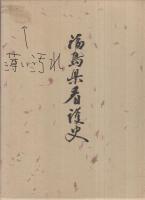 福島県看護史
薄い汚れ